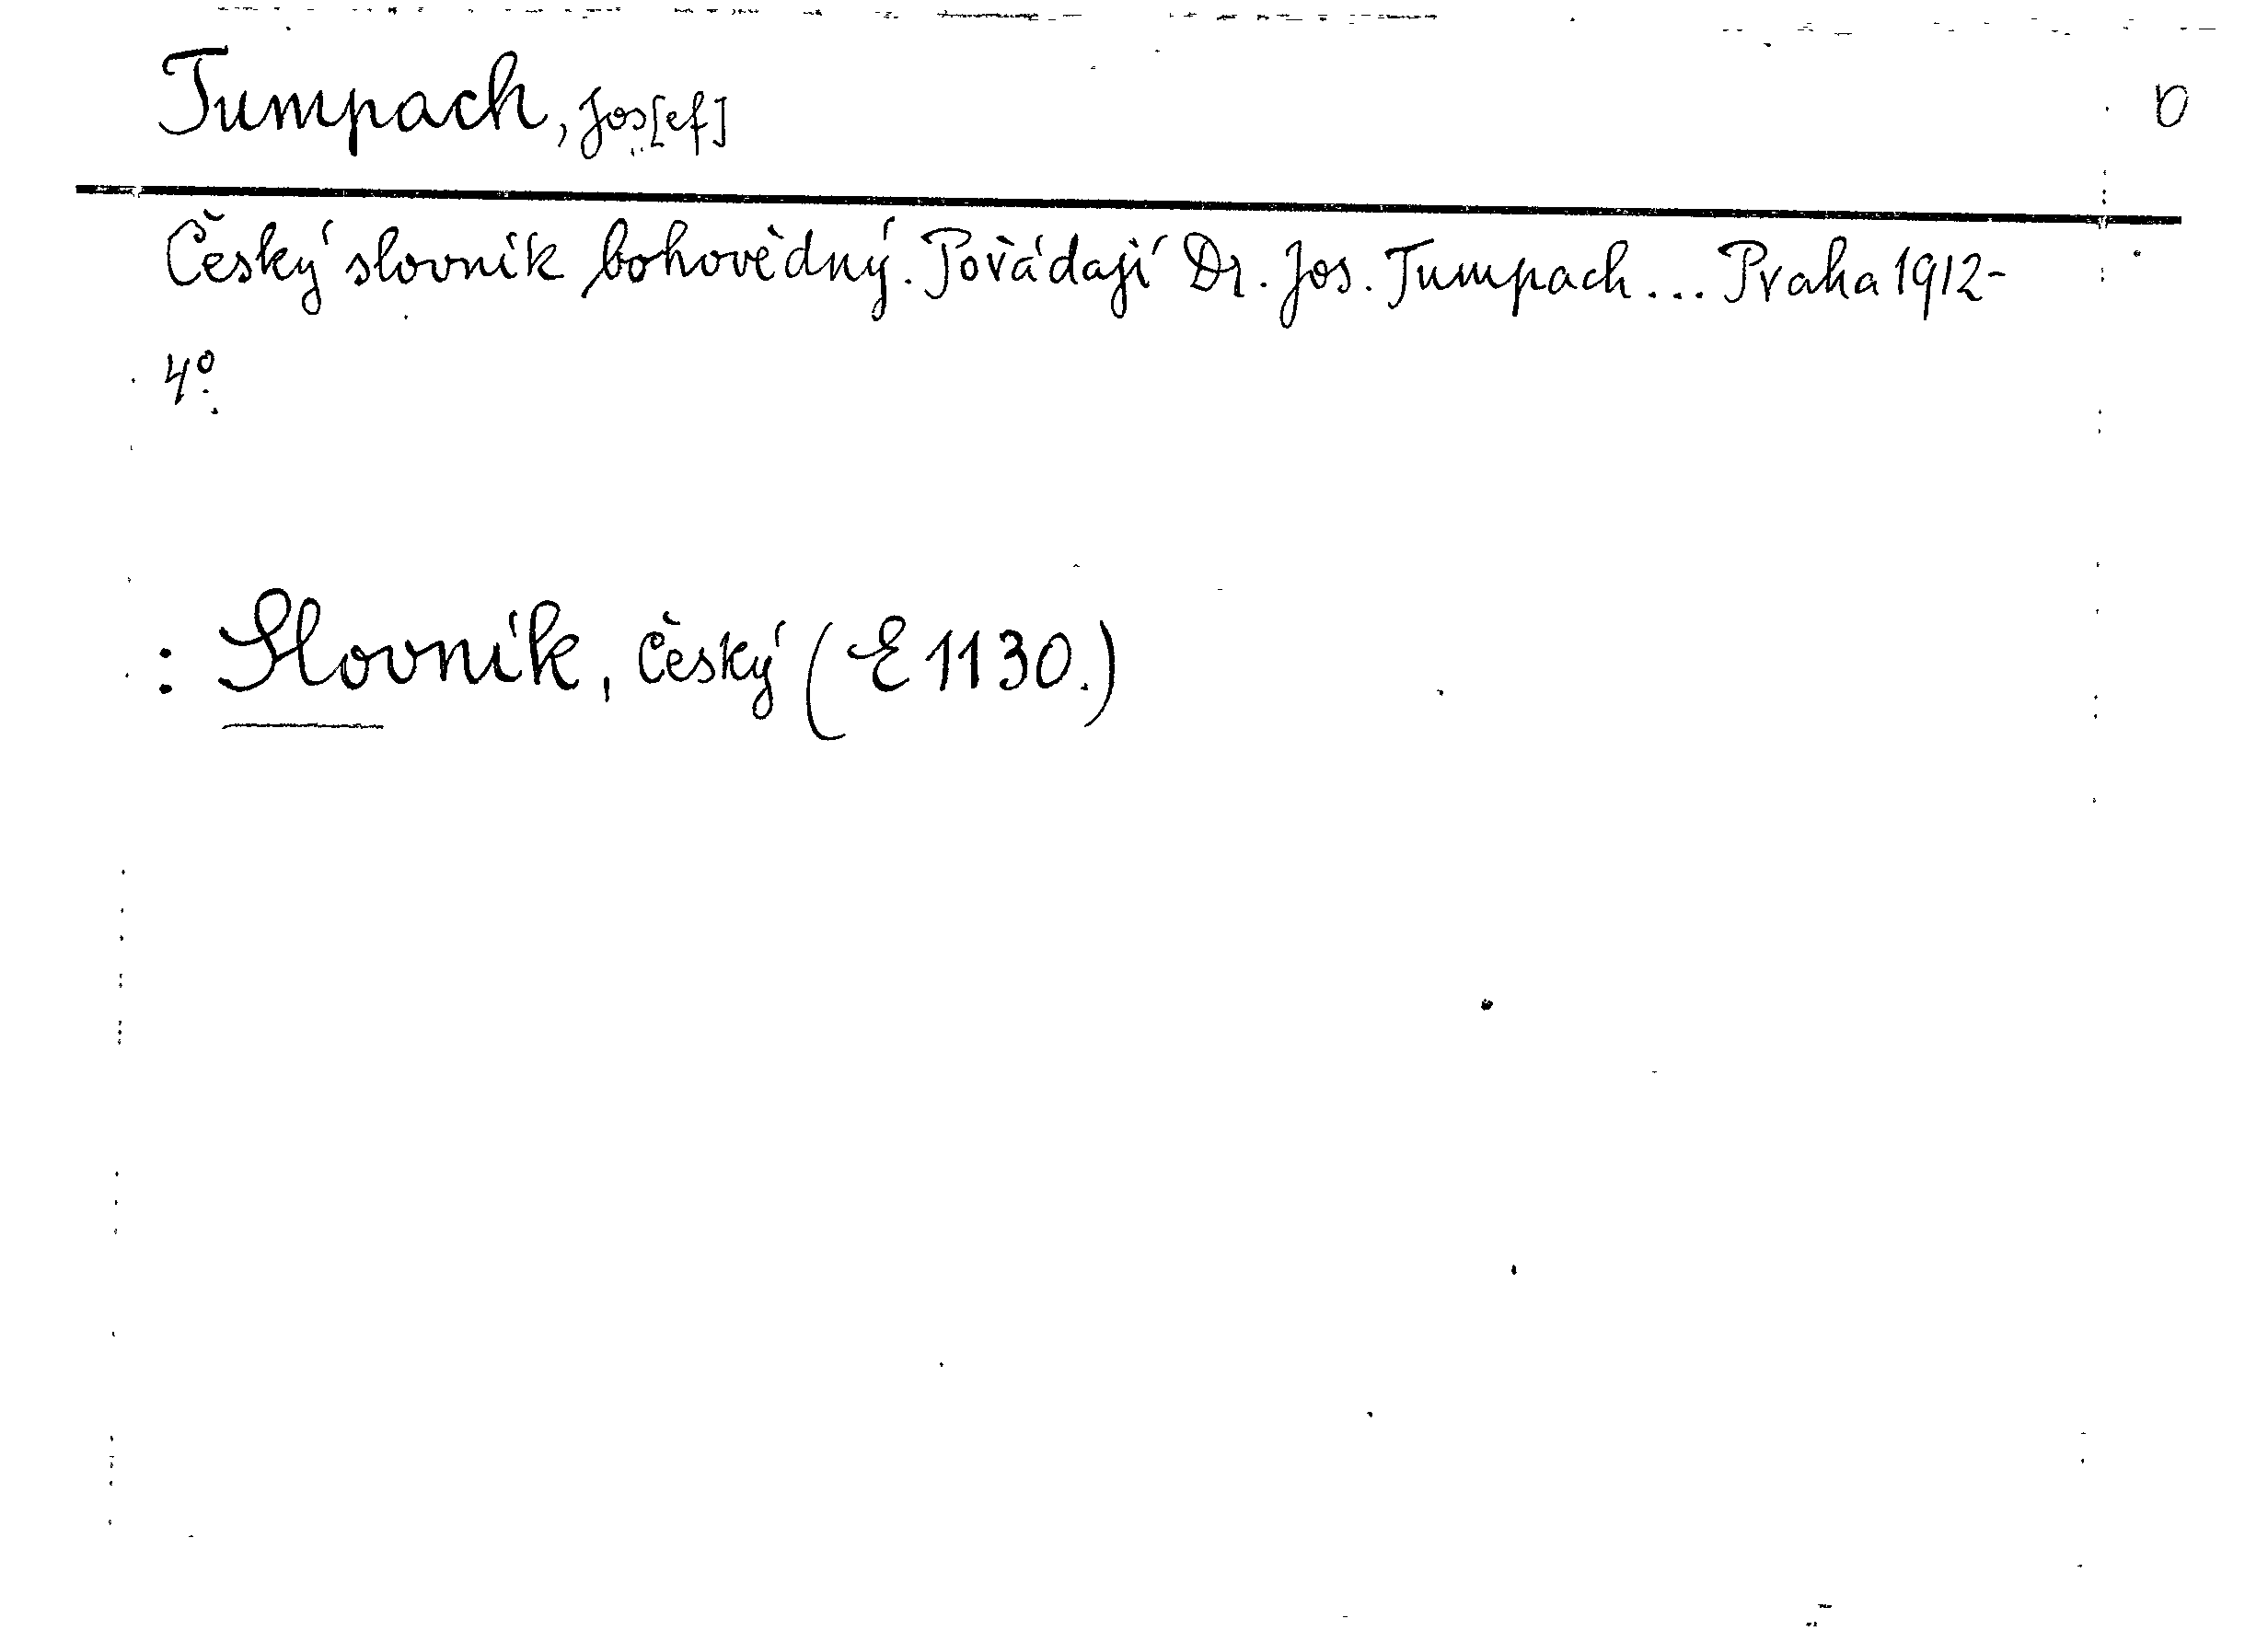 Tumpach, Jos[ef]
Český slovník bohovědný. Pořádají Dr. Jos. Tumpach... Praha 1912-
4º.
: Slovník, český (E 1130.)